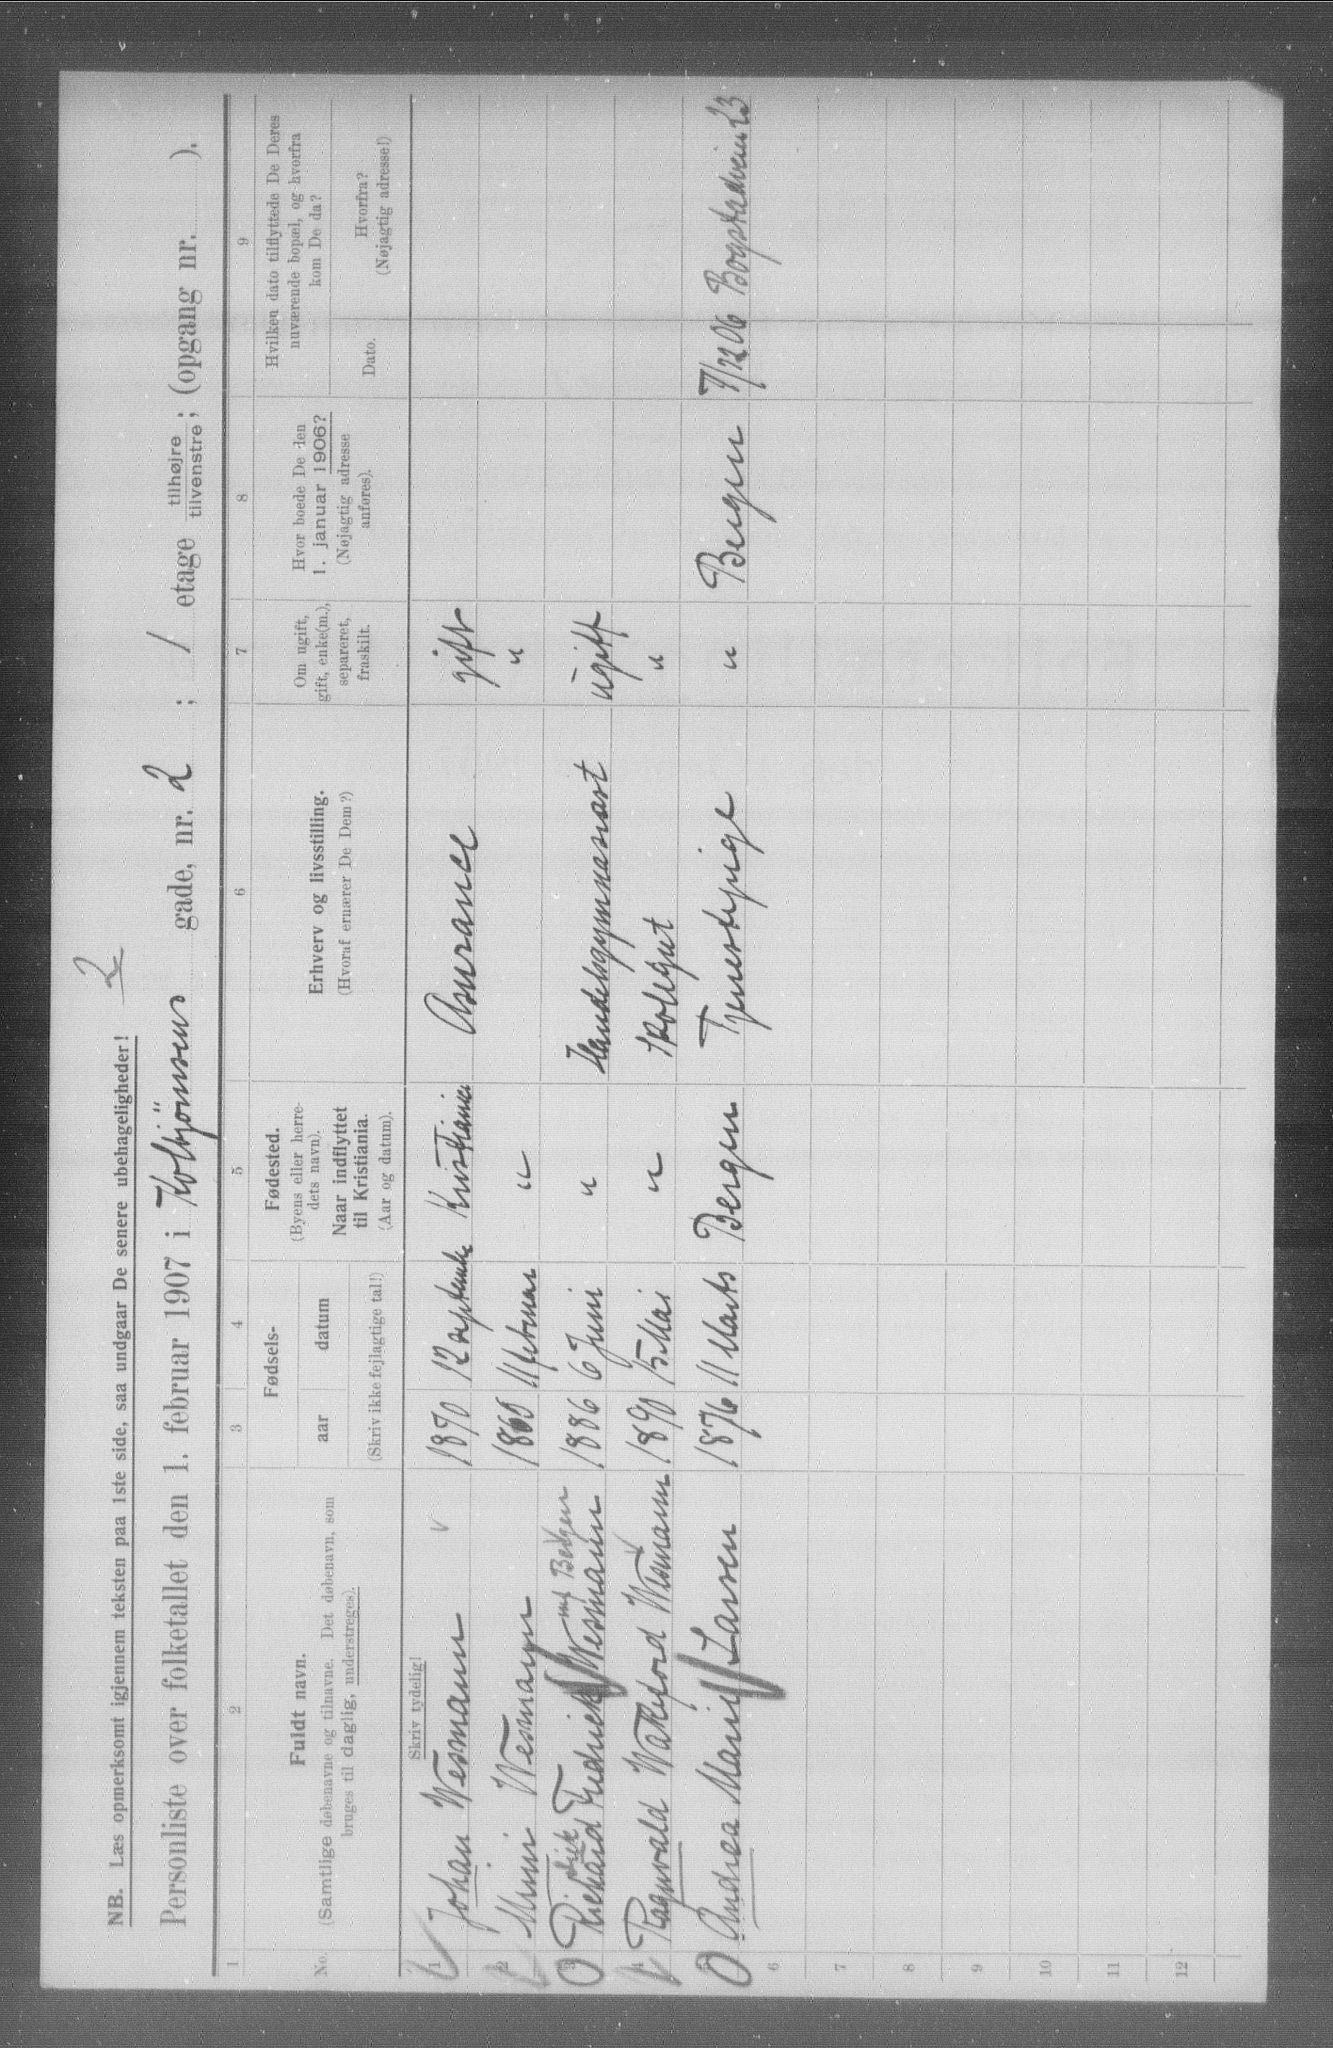 2
NB. Læs opmerksomt igjennem teksten paa 1ste side, saa undgaar De senere ubehageligheder!
Personliste over folketallet den 1. februar 1907 i Kolbjörnsens gade, nr. 2 ; 1 etage tilhøjre tilvenstre ; (opgang nr. ).
1 2 3 4 5 6 7 8 9
No.
Fuldt navn.
(Samtlige døbenavne og tilnavne. Det døbenavn, som
bruges til daglig, understreges).
Fødsels-
aar datum
(Skriv ikke fejlagtige tal!)
Fødested.
(Byens eller herre-
dets navn).
Naar indflyttet
til Kristiania.
(Aar og datum).
Erhverv og livsstilling.
(Hvoraf ernærer De Dem?)
Om ugift,
gift, enke(m.),
separeret,
fraskilt.
Hvor boede De den
1. januar 1906?
(Nøjagtig adresse
anføres).
Hvilken dato tilflyttede De Deres
nuværende bopæl, og hvorfra
kom De da?
Dato.
Hvorfra?
(Nøjagtig adresse!)
Skriv tydelig!
1 Johan Wesmann 12 September Kristiania gift
2 Wesmann 11 Februar " "
3 Richard Fredrick Wesmann 1886 6 Juni " Handelsgymnasiast ugift
4 Ragnvald Wesmann 1890 15 Mai " Skolegut "
5 Andrea Marie Larsen 1876 11 Marts Bergen Tjenestepige " Bergen 7/12 06 Bogstadveien 23
6
7
8
9
10
11
12